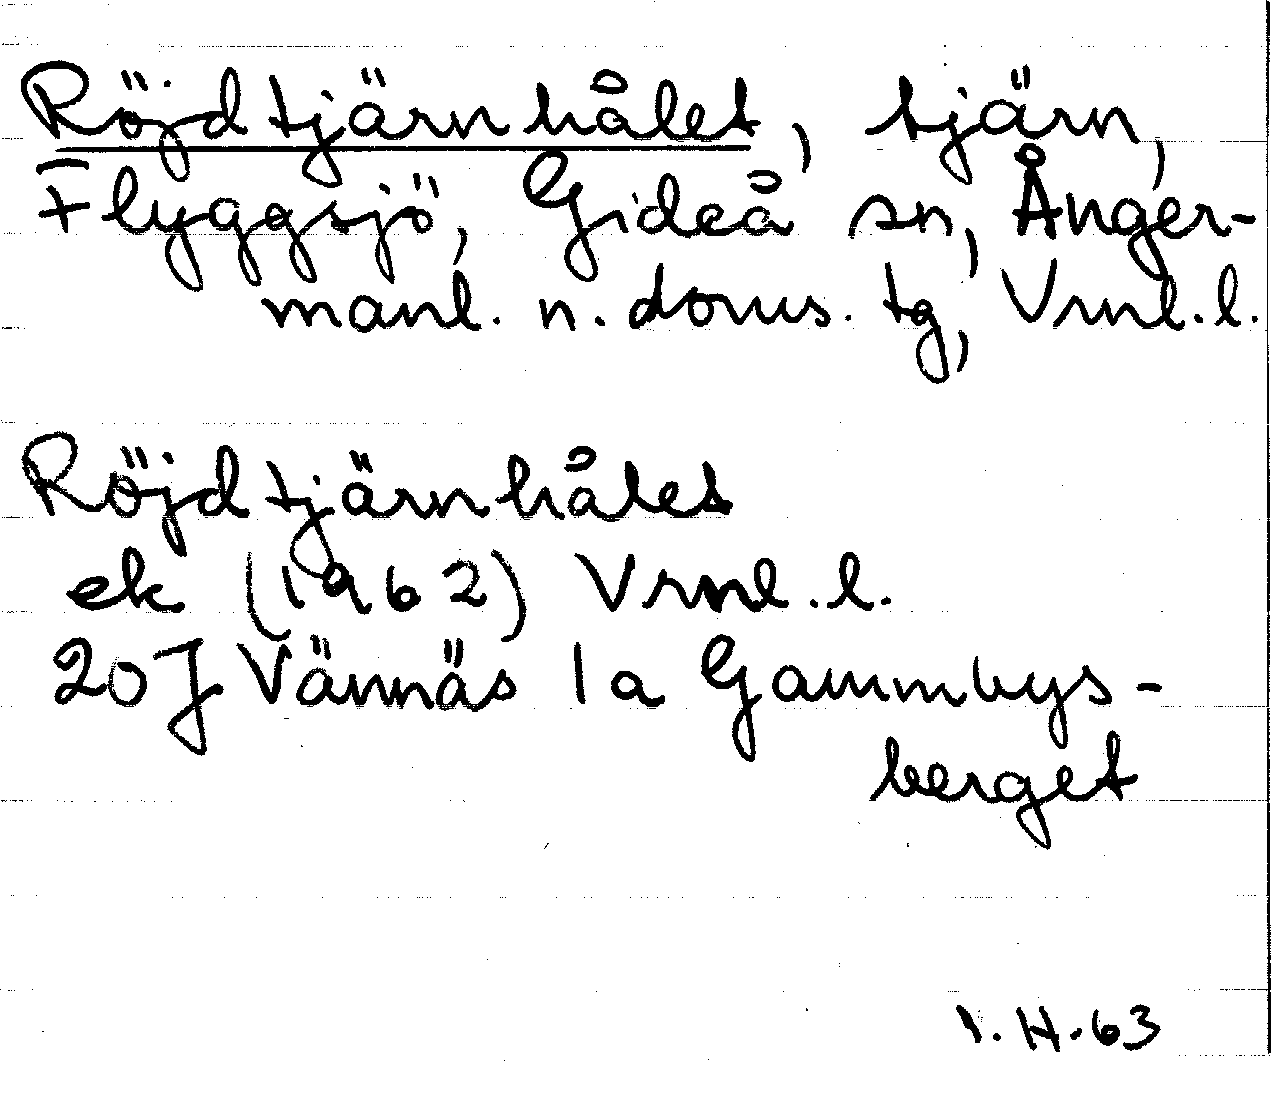 Röjdtjärnhålet, tjärn,
Flyggsjö, Gideå sn, Ånger-
manl. n. doms. tg, Vrnl. l.
Röjdtjärnhålet
ek (1962) Vrnl. l.
20J Vännäs 1a Gammbys-
berget
I. H. 63